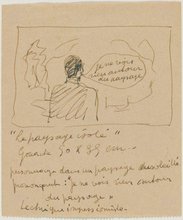 je ne vois
rien autour
du paysage
"Le paysage isolé"
50 x 85 cm
personnage dans un paysage
prononçant : je ne vois rien autour
du paysage »
technique impressionniste